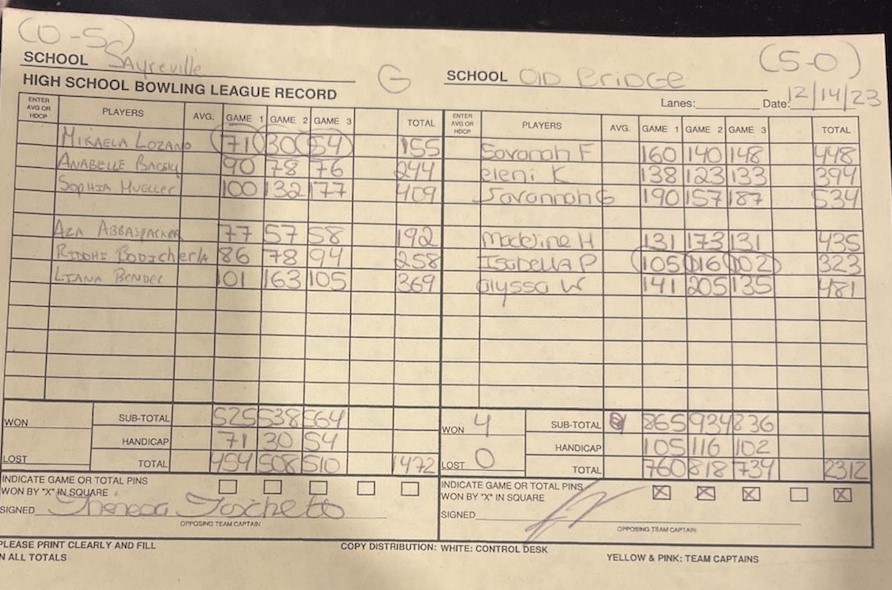 (0-5)
SCHOOL Sayreville
G
SCHOOL OlD Bridge
(5-0)
HIGH SCHOOL BOWLING LEAGUE RECORD
Lanes: Date: 12/14/23
ENTER AVG OR HDCP PLAYERS AVG. GAME 1 GAME 2 GAME 3 TOTAL ENTER AVG OR HDCP PLAYERS AVG. GAME 1 GAME 2 GAME 3 TOTAL
MIKAELA LOZANO 71 30 54 155 Savanah F 160 140 148 448
ANABELLE 90 78 76 244 eleni K 138 123 133 394
SOPHIA MUELLER 100 132 177 409 Savannah G 190 157 187 534
AZA 77 57 58 192 Madeline H 131 173 131 435
RIDDHI BODICHERLA 86 78 94 258 Isabella P 105 116 102 323
LIANA BENDEL 101 163 105 369 alyssa W 141 205 135 481
WON SUB-TOTAL 525 538 564 WON 4 SUB-TOTAL 865 934 836
HANDICAP 71 30 54 HANDICAP 105 116 102
LOST TOTAL 454 508 510 1472 LOST 0 TOTAL 760 818 734 2312
INDICATE GAME OR TOTAL PINS
WON BY "X" IN SQUARE
INDICATE GAME OR TOTAL PINS
WON BY "X" IN SQUARE X X X X
SIGNED Theresa
OPPOSING TEAM CAPTAIN
SIGNED
OPPOSING TEAM CAPTAIN
PLEASE PRINT CLEARLY AND FILL
N ALL TOTALS
COPY DISTRIBUTION: WHITE: CONTROL DESK
YELLOW & PINK: TEAM CAPTAINS